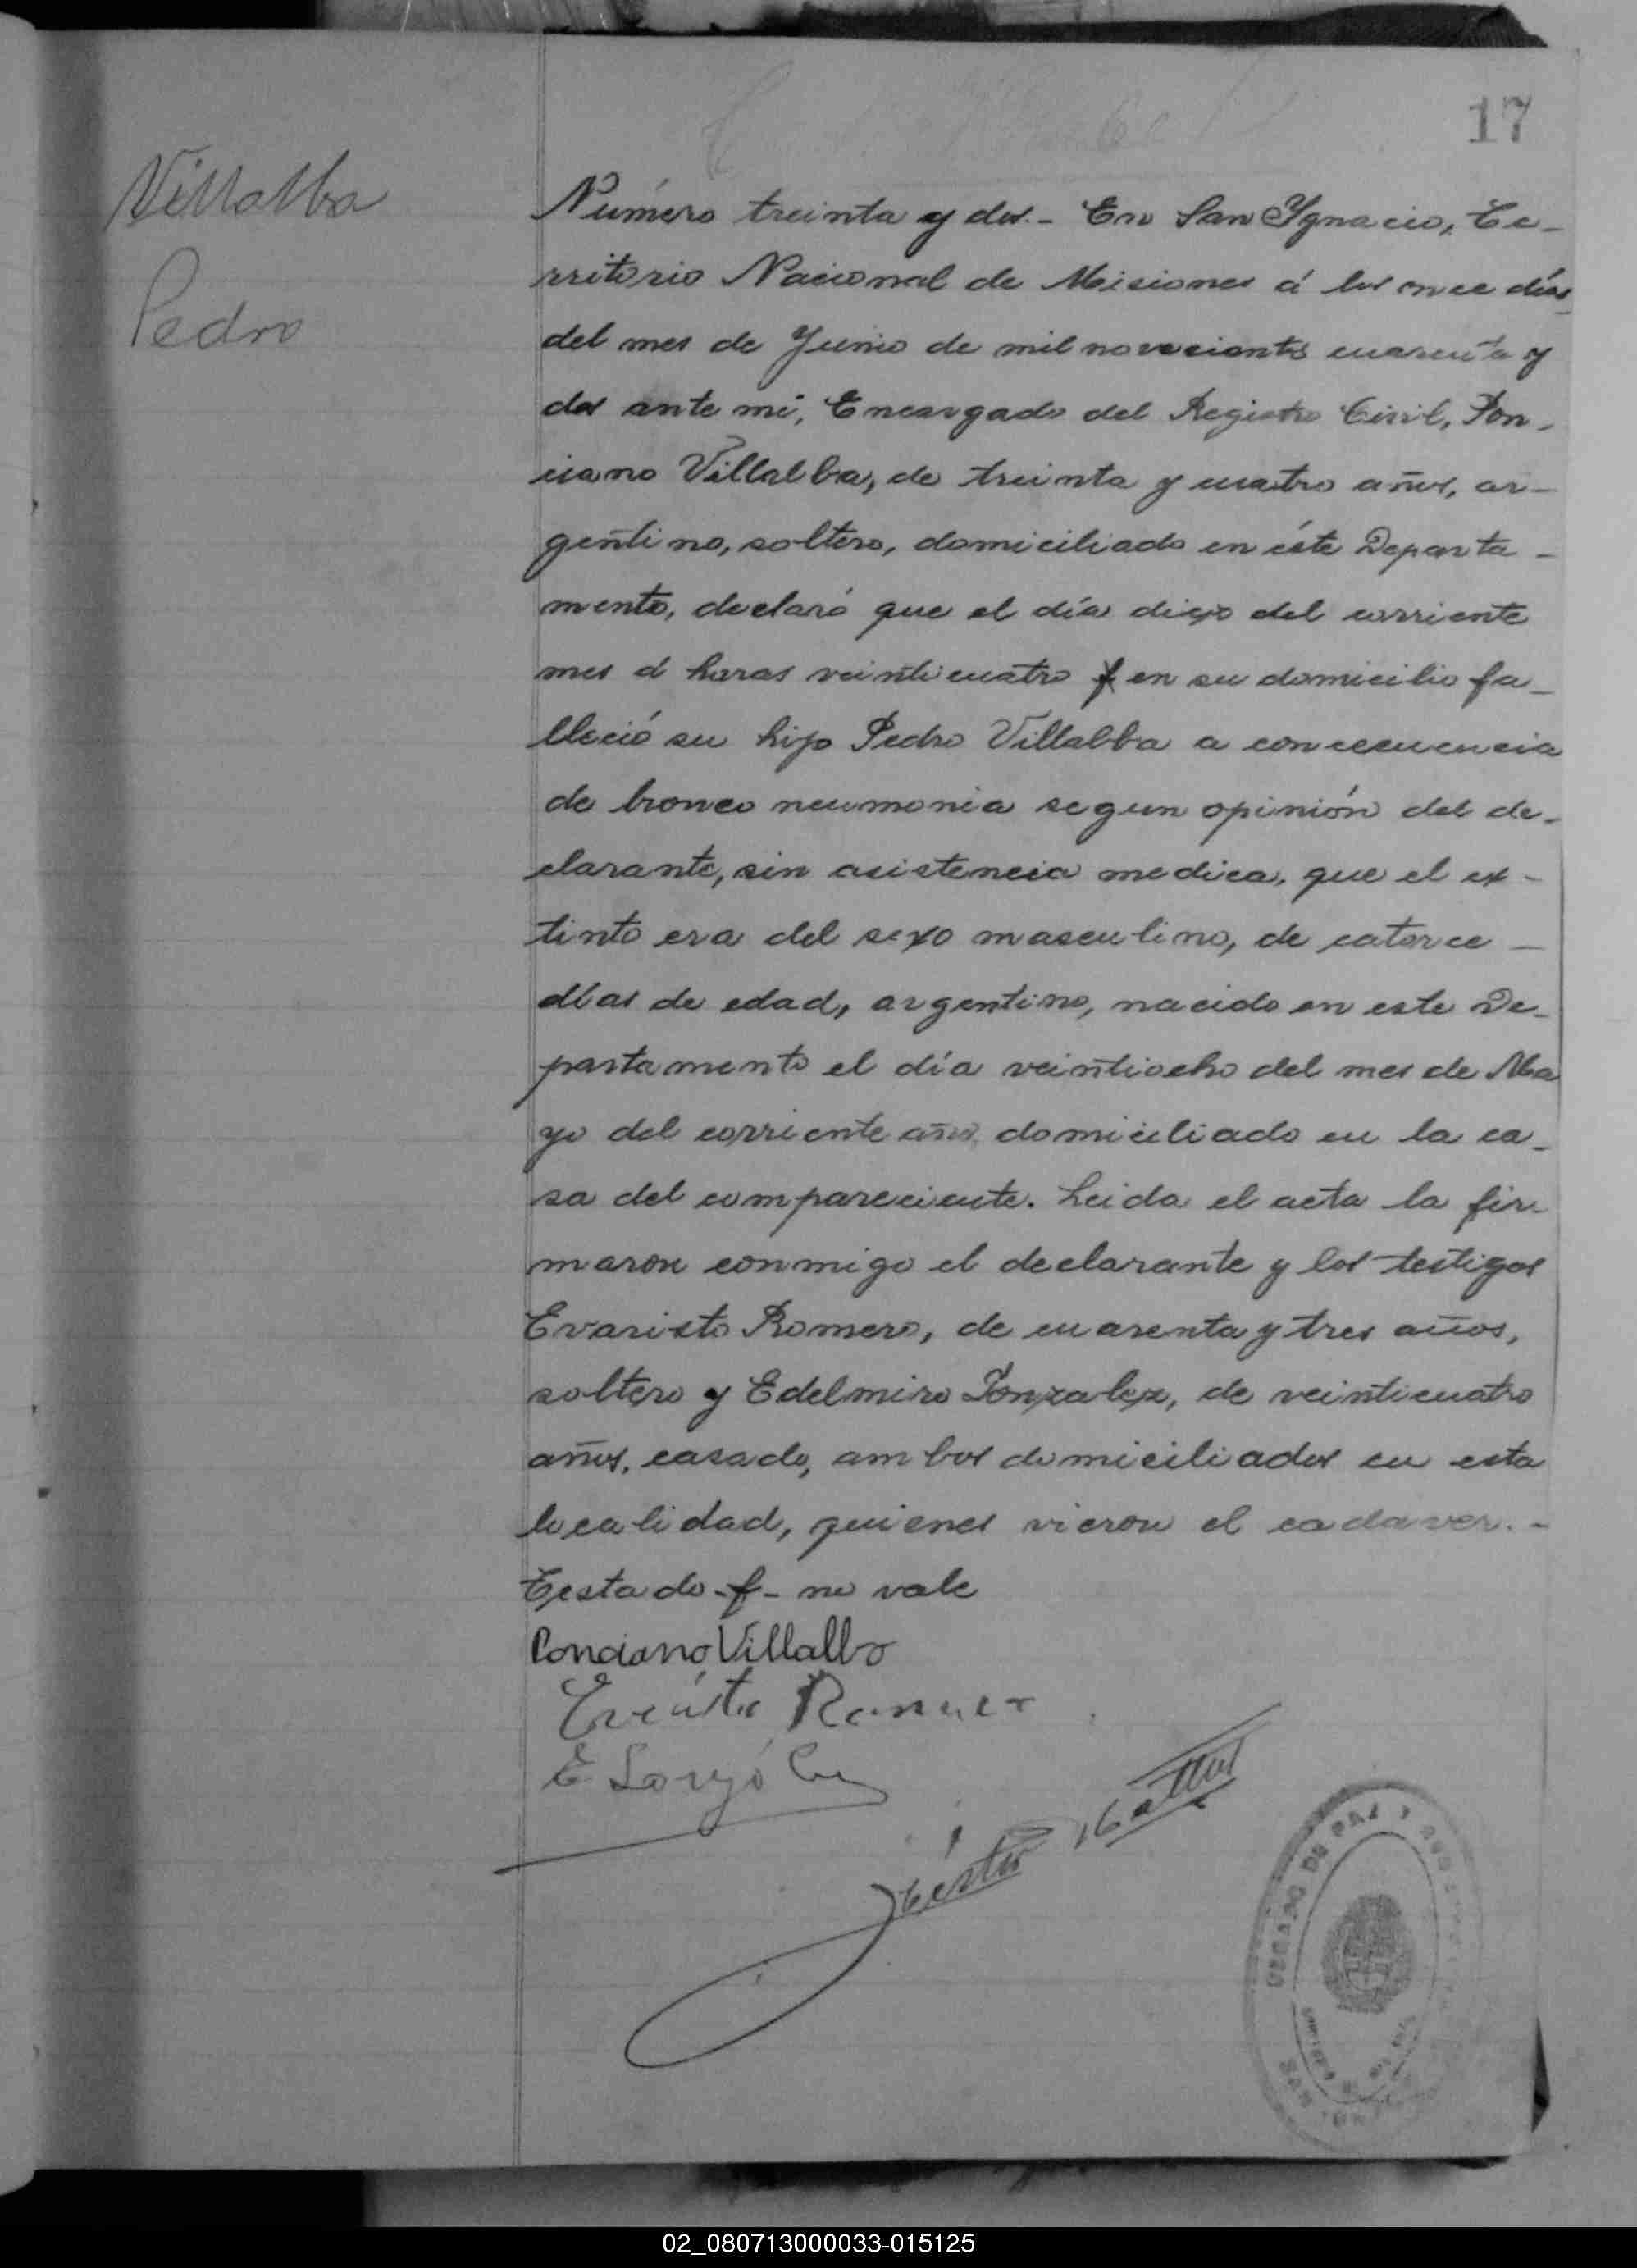 17
Villalba
Pedro
Número treinta y dos.- En San Ygnacio, Te-
rritorio Nacional de Misiones á los once días
del mes de Junio de mil novecientos cuarenta y
dos ante mi, Encargado del Registro Civil, Pon-
ciano Villalba, de treinta y cuatro años, ar-
gentino, soltero, domiciliado en éste Departa-
mento, declaró que el día diez del corriente
mes á horas veinticuatro f en su domicilio fa-
lleció su hijo Pedro Villalba a concecuencia
de bronco neumonia segun opinión del de-
clarante, sin asistencia medica, que el ex-
tinto era del sexo masculino, de catorce -
días de edad, argentino, nacido en este De-
partamento el día veintiocho del mes de Ma
yo del corriente año, domiciliado en la ca-
sa del compareciente. Leida el acta la fir-
maron conmigo el declarante y los testigos
Evaristo Romero, de cuarenta y tres años,
soltero y Edelmiro Gonzalez, de veinticuatro
años, casado, ambos domiciliados en esta
localidad, quienes vieron el cadaver.-
Testado -f- no vale
Ponciano Villalba
Evaristo Romero
E Gonzalez
JUZGADO DE PAZ Y
SAN
02_080713000033-015125